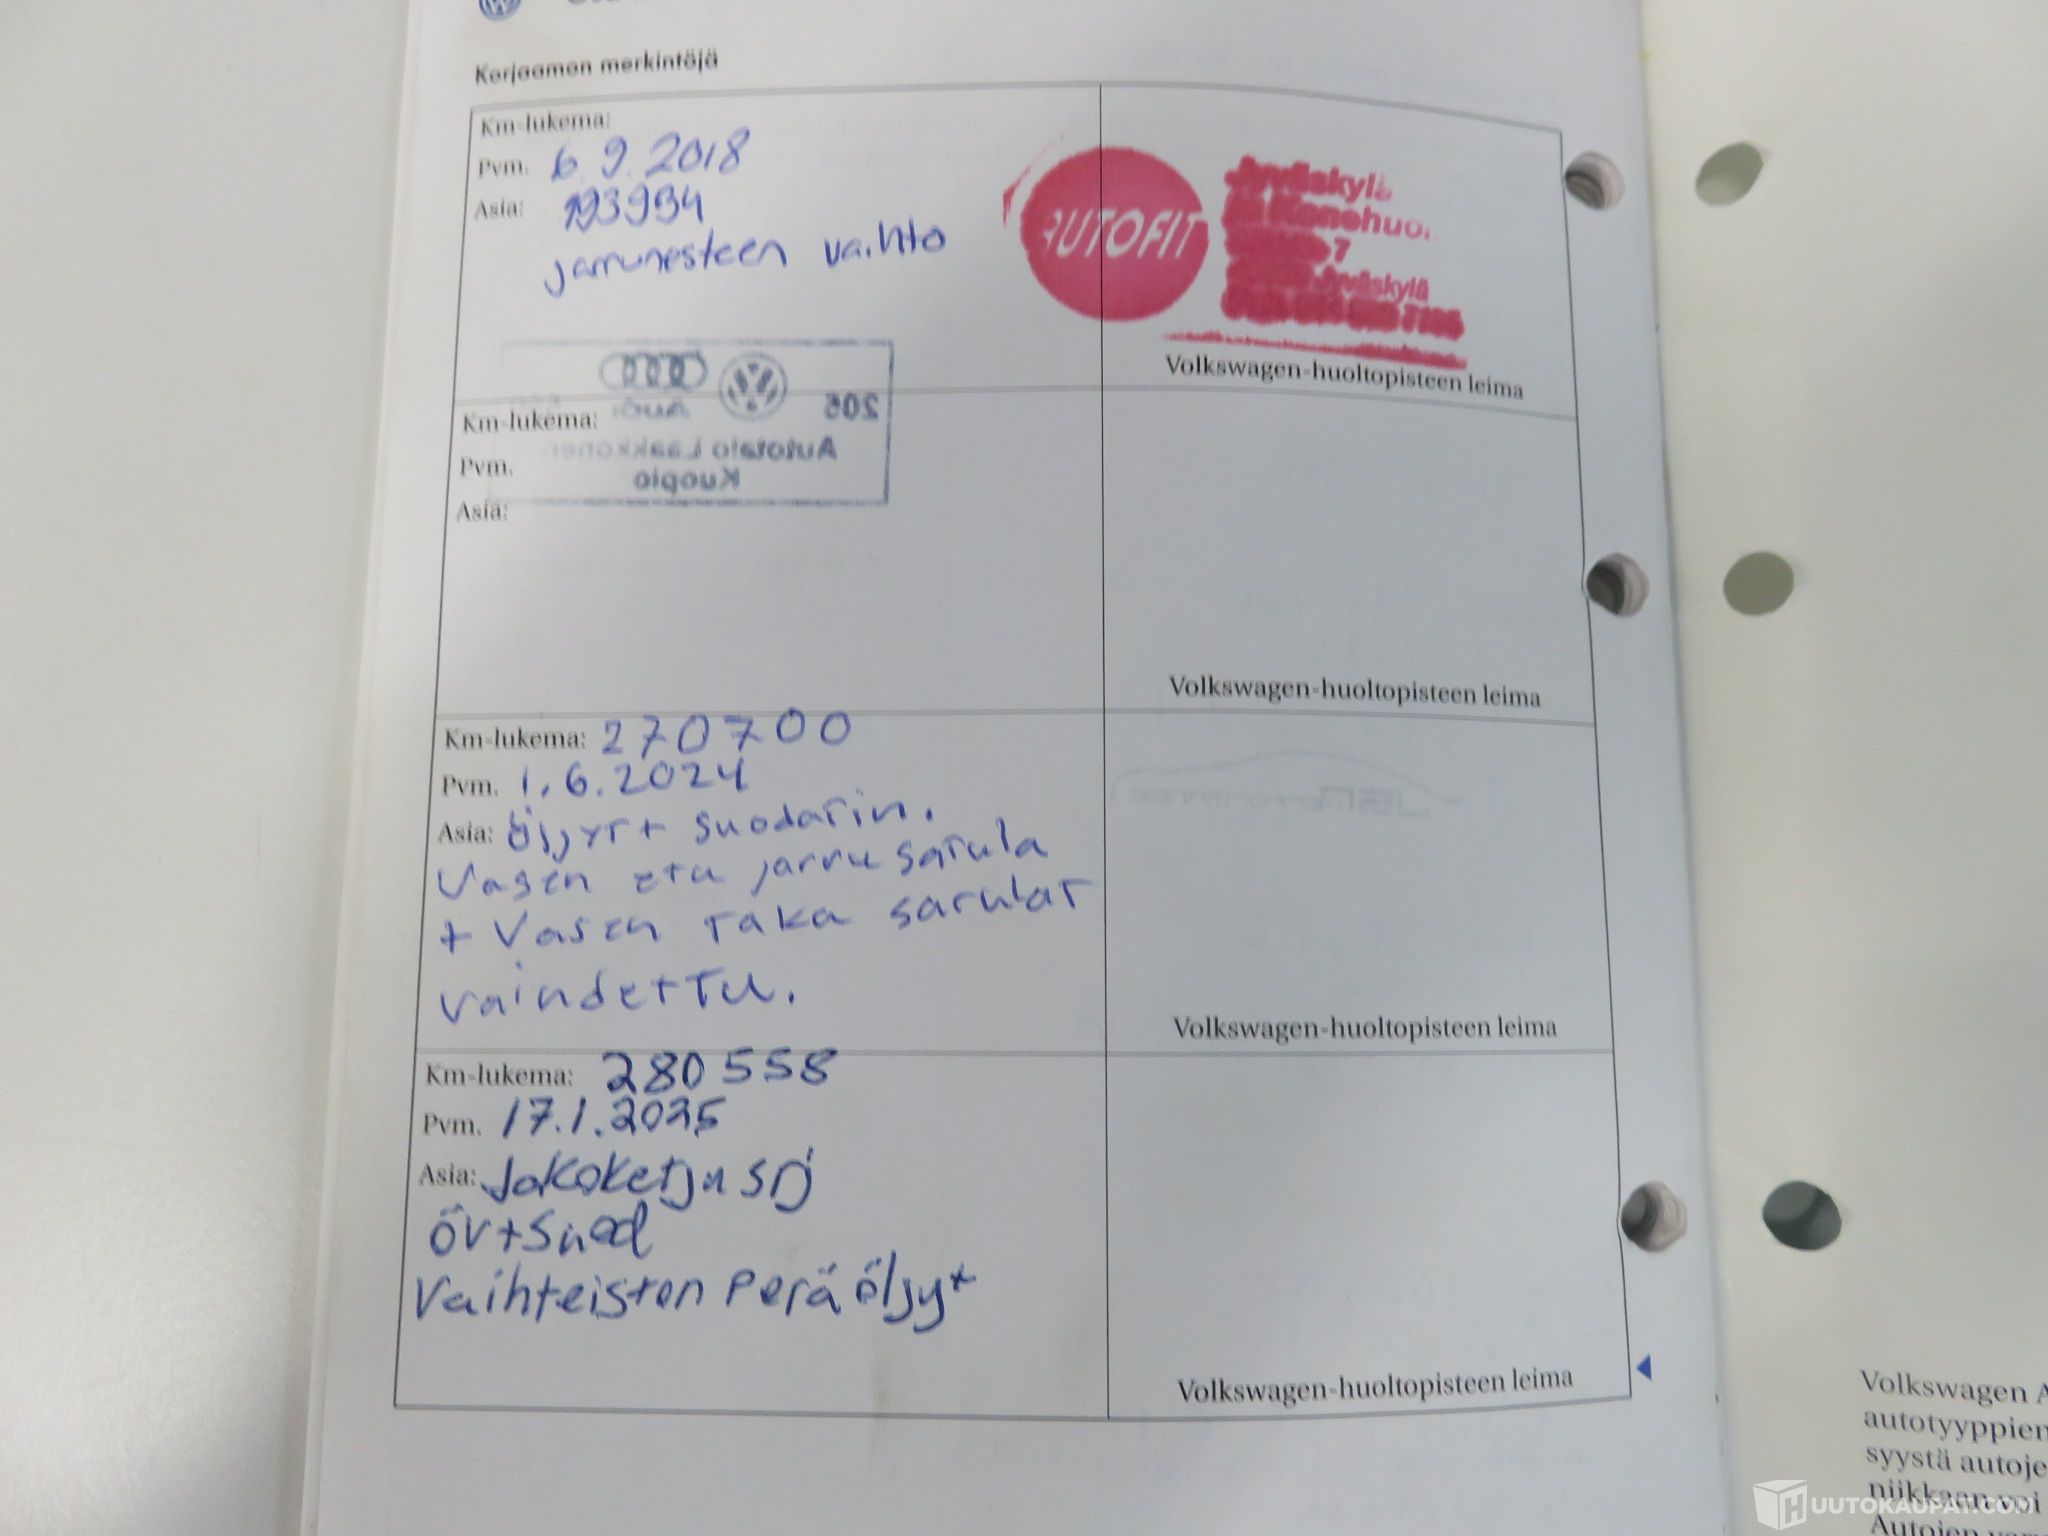 Korjaamon merkintöjä
Km-lukema:
Pvm. 6.9.2018
Asia: 193954
jarrunesteen vaihto
AUTOFIT
Jyväskylä
Konehuol
7
Jyväskylä
Volkswagen-huoltopisteen leima
Km-lukema:
Pvm.
Asia:
Audi
205
Autotalo Laakkonen
Kuopio
Volkswagen-huoltopisteen leima
Km-lukema: 270700
Pvm. 1.6.2024
Asia: Öljyt + suodatin.
Vasen etu jarru satula
+ Vasen taka satulat
vaindettu.
Volkswagen-huoltopisteen leima
Km-lukema: 280558
Pvm. 17.1.2025
Asia: Jakoketju srj
öv+Suod
Vaihteiston Perä öljyt
Volkswagen-huoltopisteen leima
Volkswagen A
autotyyppien
syystä autoje
niikkaan voi
Autojen
HUUTOKAUPAT.COM